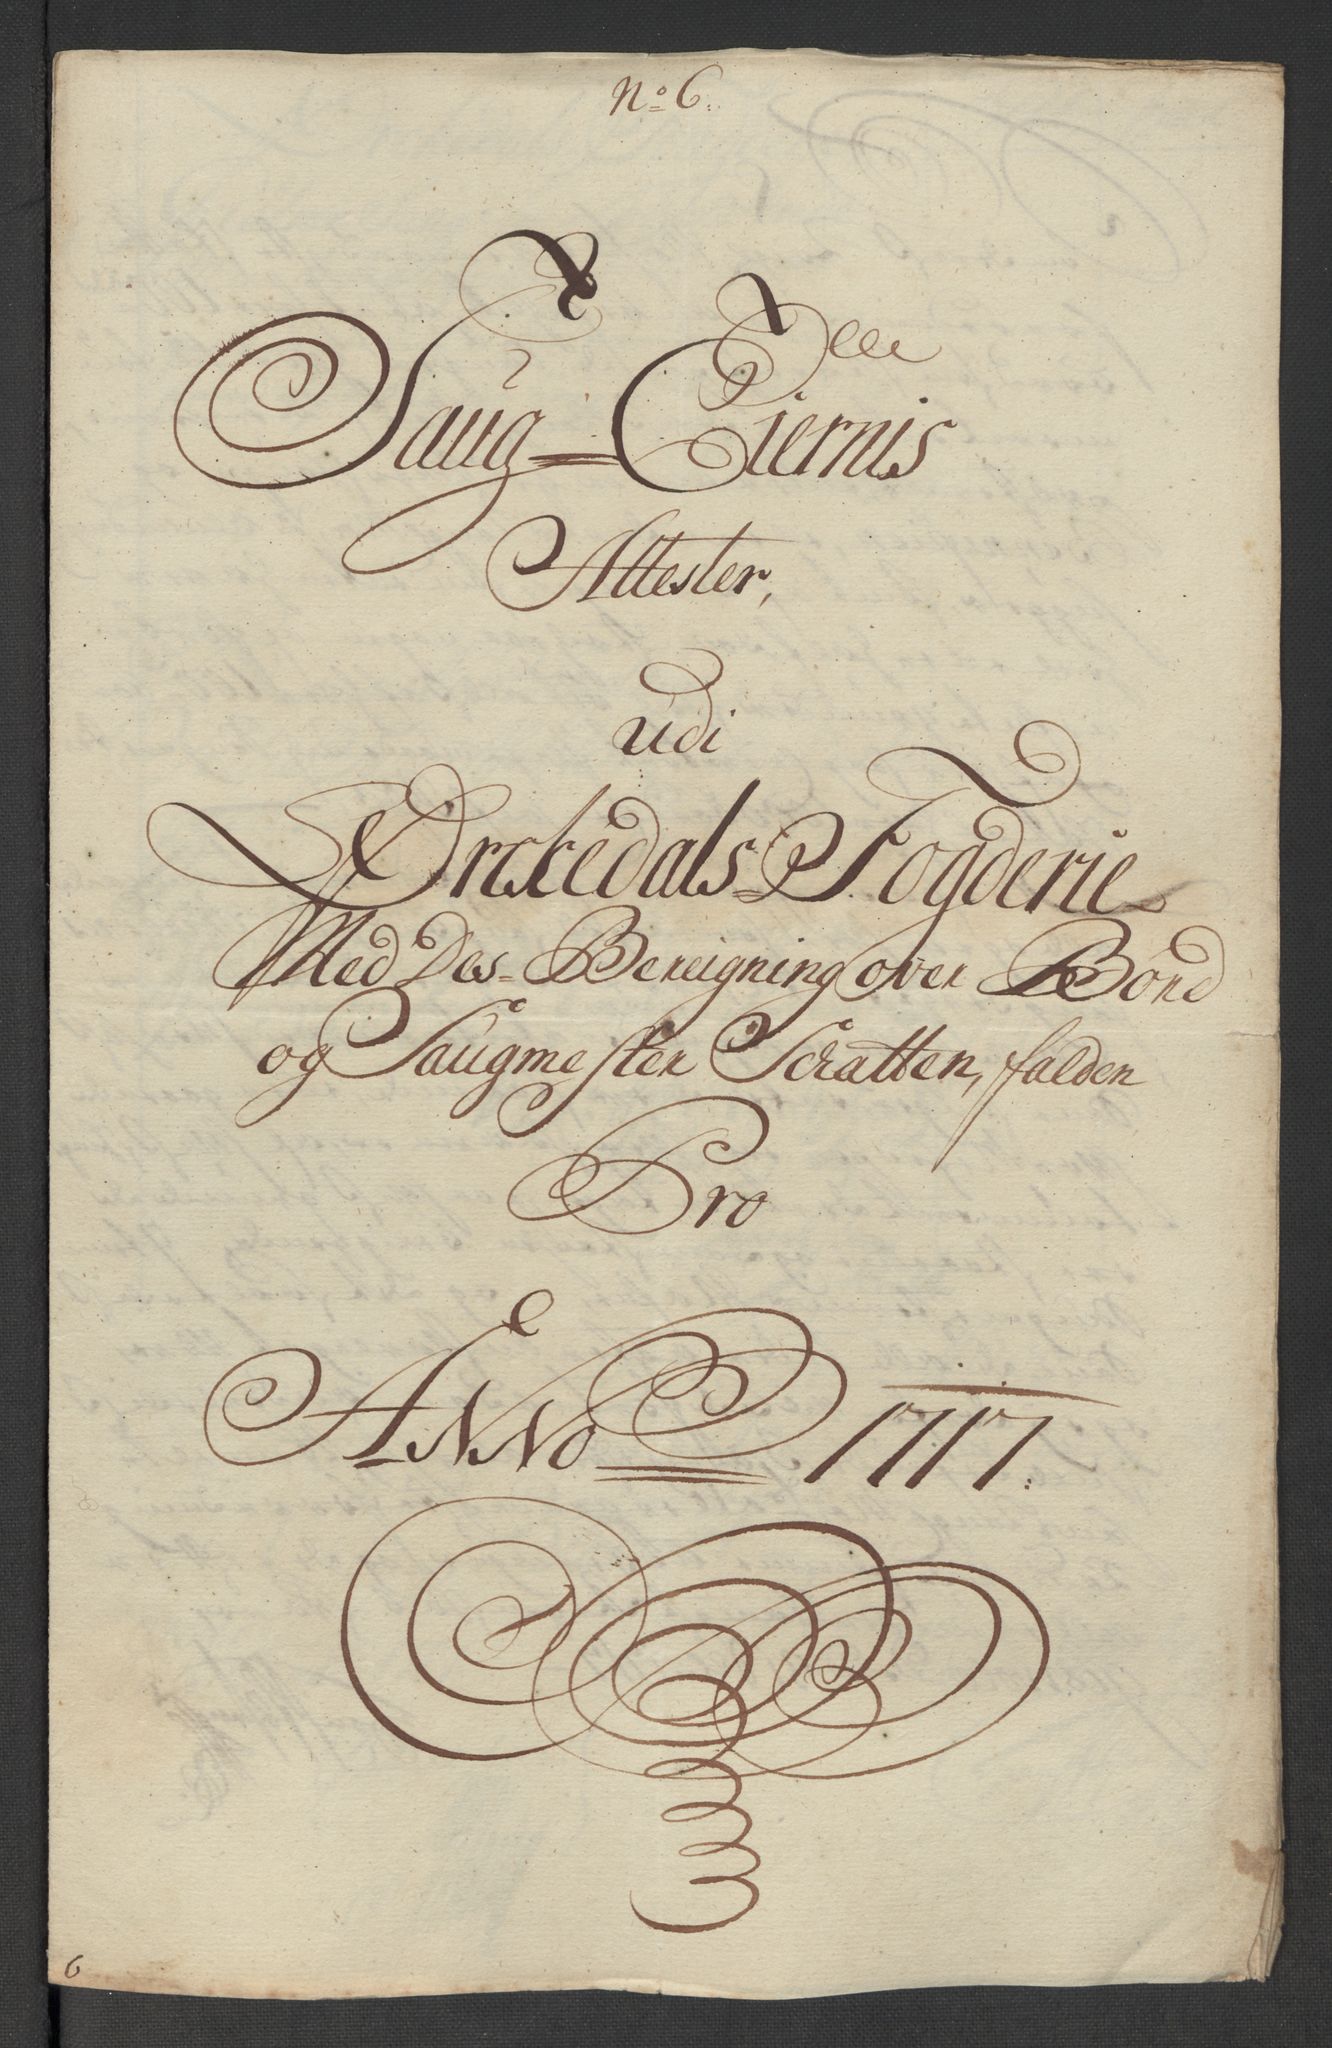 No 6.
Saug-Eiernis
Attester,
udi
Orckedals Fogderie
Med Des- Bereigning over Bord
og Saugmester Schatten, falden
Pro
ANNo 1717.
6